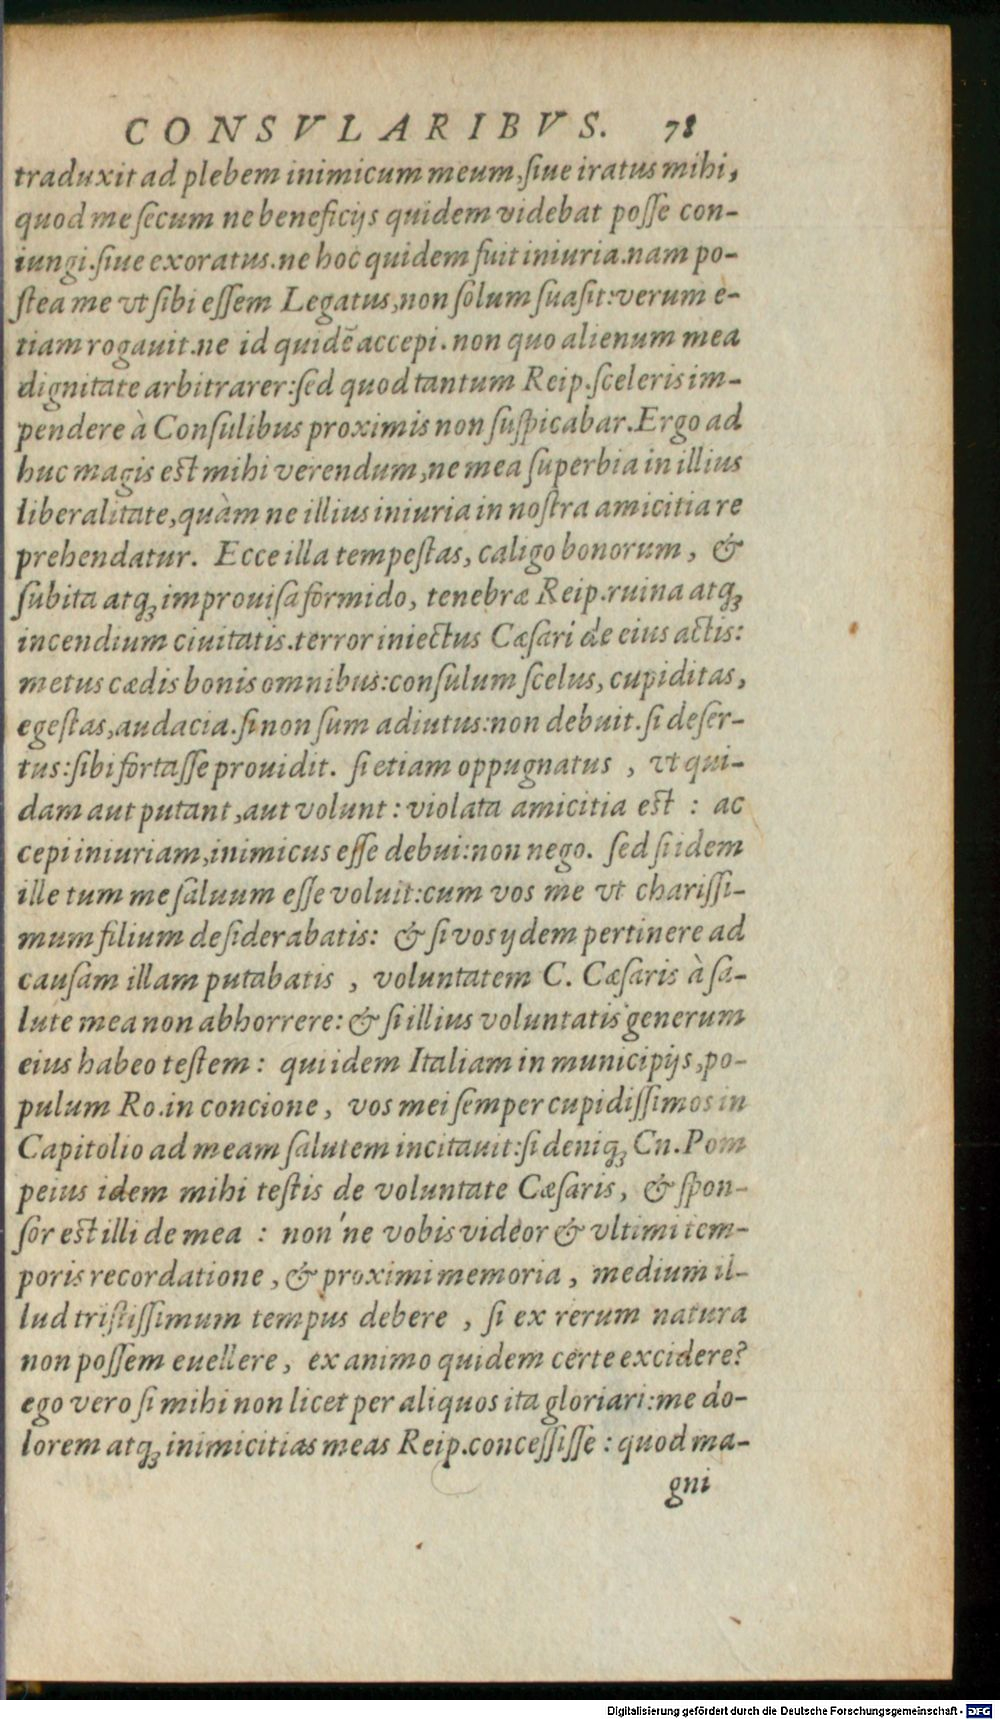 CONSVLARIBVS. 78
traduxit ad plebem inimicum meum, ſiue iratus mihi,
quod me ſecum ne beneficijs quidem videbat poſſe con-
iungi. ſiue exoratus. ne hoc quidem fuit iniuria. nam po-
ſtea me vt ſibi eſſem Legatus, non ſolum ſuaſit: verum e-
tiam rogauit. ne id quidẽ accepi. non quo alienum mea
dignitate arbitrarer: ſed quod tantum Reip. ſceleris im-
pendere à Conſulibus proximis non ſuſpicabar. Ergo ad
huc magis est mihi verendum, ne mea ſuperbia in illius
liberalitate, quàm ne illius iniuria in noſtra amicitia re
prehendatur. Ecce illa tempeſtas, caligo bonorum, &
ſubita atq; improuiſa formido, tenebræ Reip. ruina atq;
incendium ciuitatis. terror iniectus Cæſari de eius actis:
metus cædis bonis omnibus: conſulum ſcelus, cupiditas,
egeſtas, audacia. ſi non ſum adiutus: non debuit. ſi deſer-
tus: ſibi fortaſſe prouidit. ſi etiam oppugnatus , vt qui-
dam aut putant, aut volunt: violata amicitia est : ac
cepi iniuriam, inimicus eſſe debui: non nego. ſed ſi idem
ille tum me ſaluum eſſe voluit: cum vos me vt chariſſi-
mum filium deſiderabatis: & ſi vos ijdem pertinere ad
cauſam illam putabatis , voluntatem C. Cæſaris à ſa-
lute mea non abhorrere: & ſi illius voluntatis generum
eius habeo teſtem: qui idem Italiam in municipijs, po-
pulum Ro. in concione, vos mei ſemper cupidiſſimos in
Capitolio ad meam ſalutem incitauit: ſi deniq; Cn. Pom
peius idem mihi teſtis de voluntate Cæſaris, & ſpon-
ſor est illi de mea : non'ne vobis videor & vltimi tem-
poris recordatione, & proximi memoria, medium il-
lud triſtiſſimum tempus debere , ſi ex rerum natura
non poſſem euellere, ex animo quidem certe excidere?
ego vero ſi mihi non licet per aliquos ita gloriari: me do-
lorem atq; inimicitias meas Reip. conceſſiſſe: quod ma-
gni
Digitalisierung gefördert durch die Deutsche Forschungsgemeinschaft - DFG